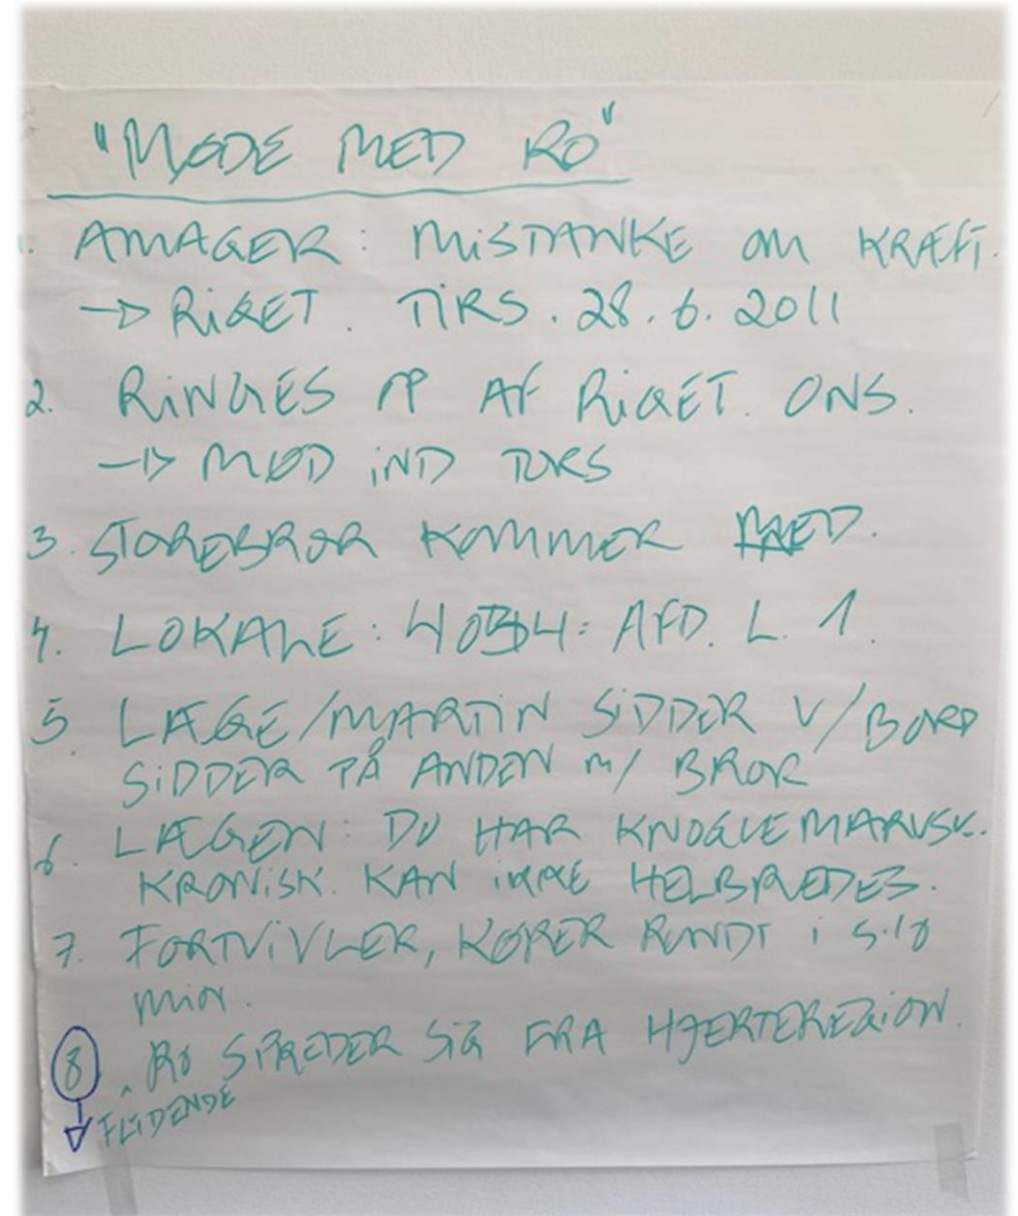 "MØDE MED RO"
1. AMAGER: MISTANKE OM KRÆFT.
→ RIGET. TIRS. 28.6.2011
2. RINGES OP AF RIGET. ONS.
→ MØD IND TORS
3. STOREBROR KOMMER MED.
4. LOKALE: 4054: AFD. L. 1.
5. LÆGE/MARTIN SIDDER V/BORD
SIDDER PÅ ANDEN M/ BROR
6. LÆGEN: DU HAR KNOGLEMARVSK.
KRONISK. KAN IKKE HELBREDES.
7. FORTVIVLER, KØRER RUNDT I 5-10
MIN.
8. RO SPREDER SIG FRA HJERTEREGION.
FLYDENDE